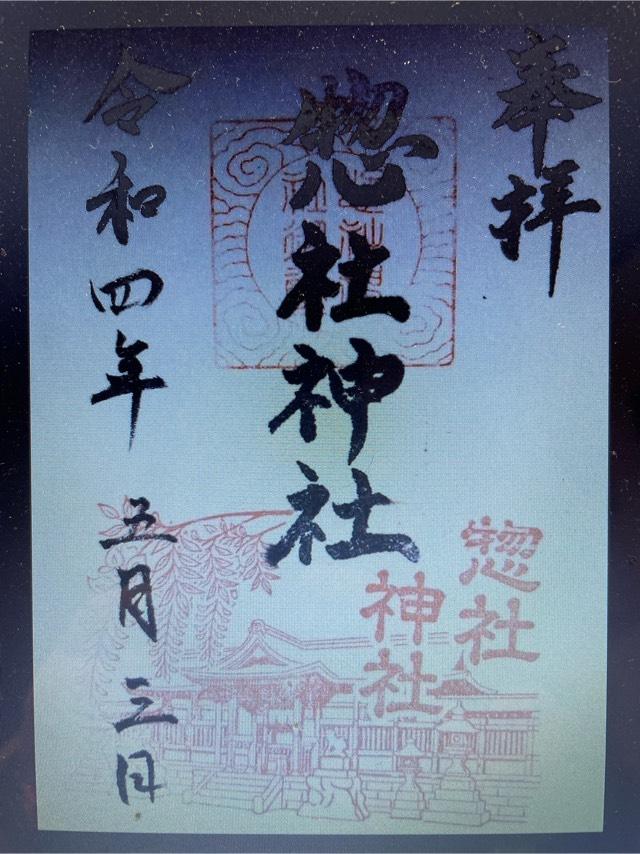 奉拝
惣社神社
惣社
神社
令和四年 五月 三日